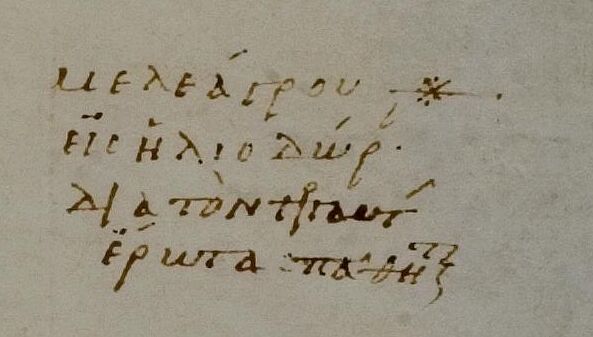 μελεάγρου
εἰς ἡλιοδώρ
δια τὸν αυτ
ἔρωτα παθητ